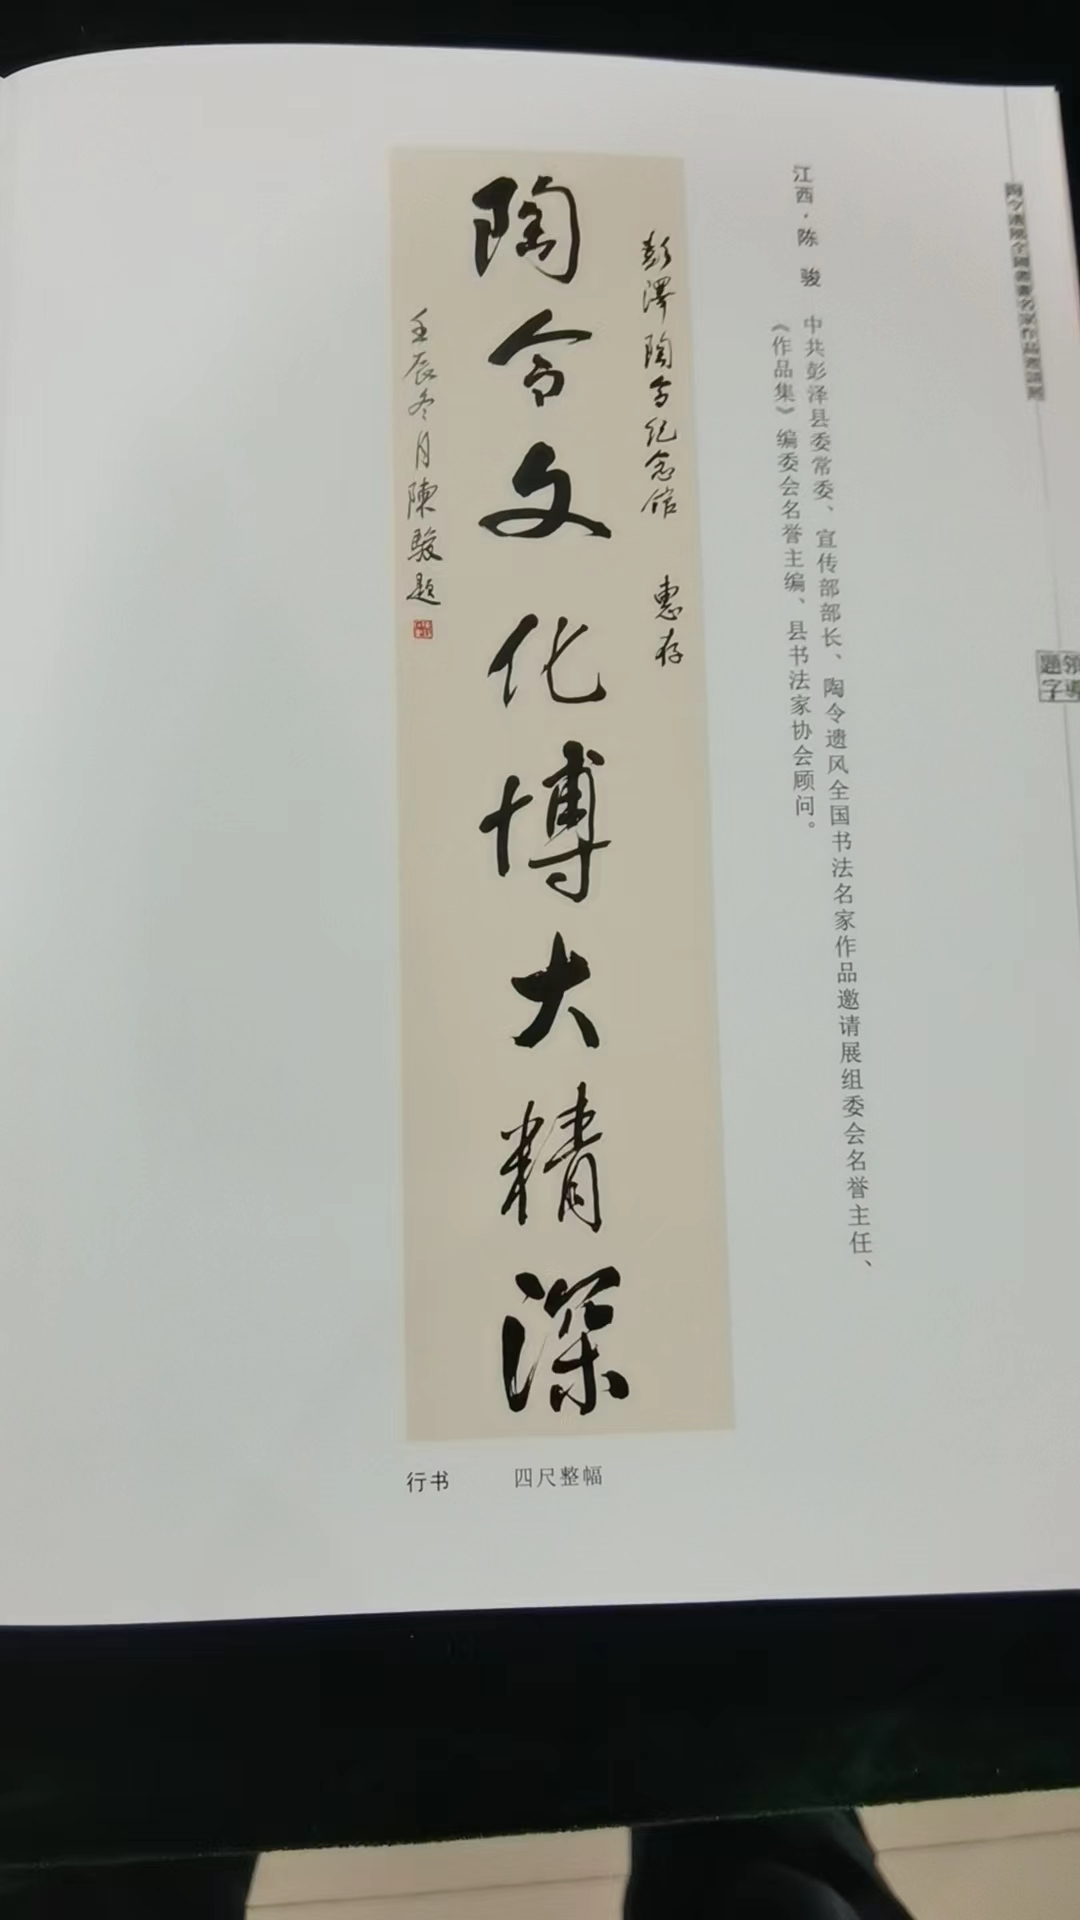 陶令遗风全國書畫名家作品邀請展
領導
題字
江西·陈　骏
中共彭泽县委常委、宣传部部长、陶令遗风全国书法名家作品邀请展组委会名誉主任、
《作品集》编委会名誉主编、县书法家协会顾问。
彭澤陶令纪念馆　惠存
陶令文化博大精深
壬辰冬月陳駿題
行书　四尺整幅